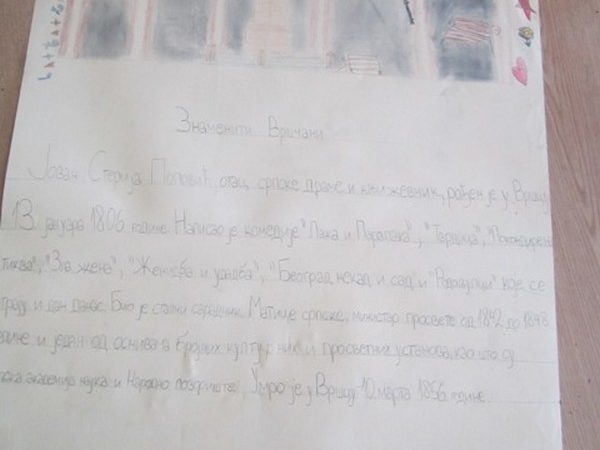 Знаменити Вршчани
Јован Стерија Поповић, отац српске драме и књижевник, рођен је у Вршцу
13. јануара 1806. године. Написао је комедије "Лажа и Паралажа", "Тврдица", "Покондирена
тиква", "Зла жена", "Женидба и удадба", "Београд некад и сад" и "Родољупци" које се
и дан данас. Био је стални сарадник Матице српске, министар просвете од 1842 до 1848.
године и један од оснивача бројних културних и просветних установа, као што су
академија наука и Народно позориште. Умро је у Вршцу 10. марта 1856. године.